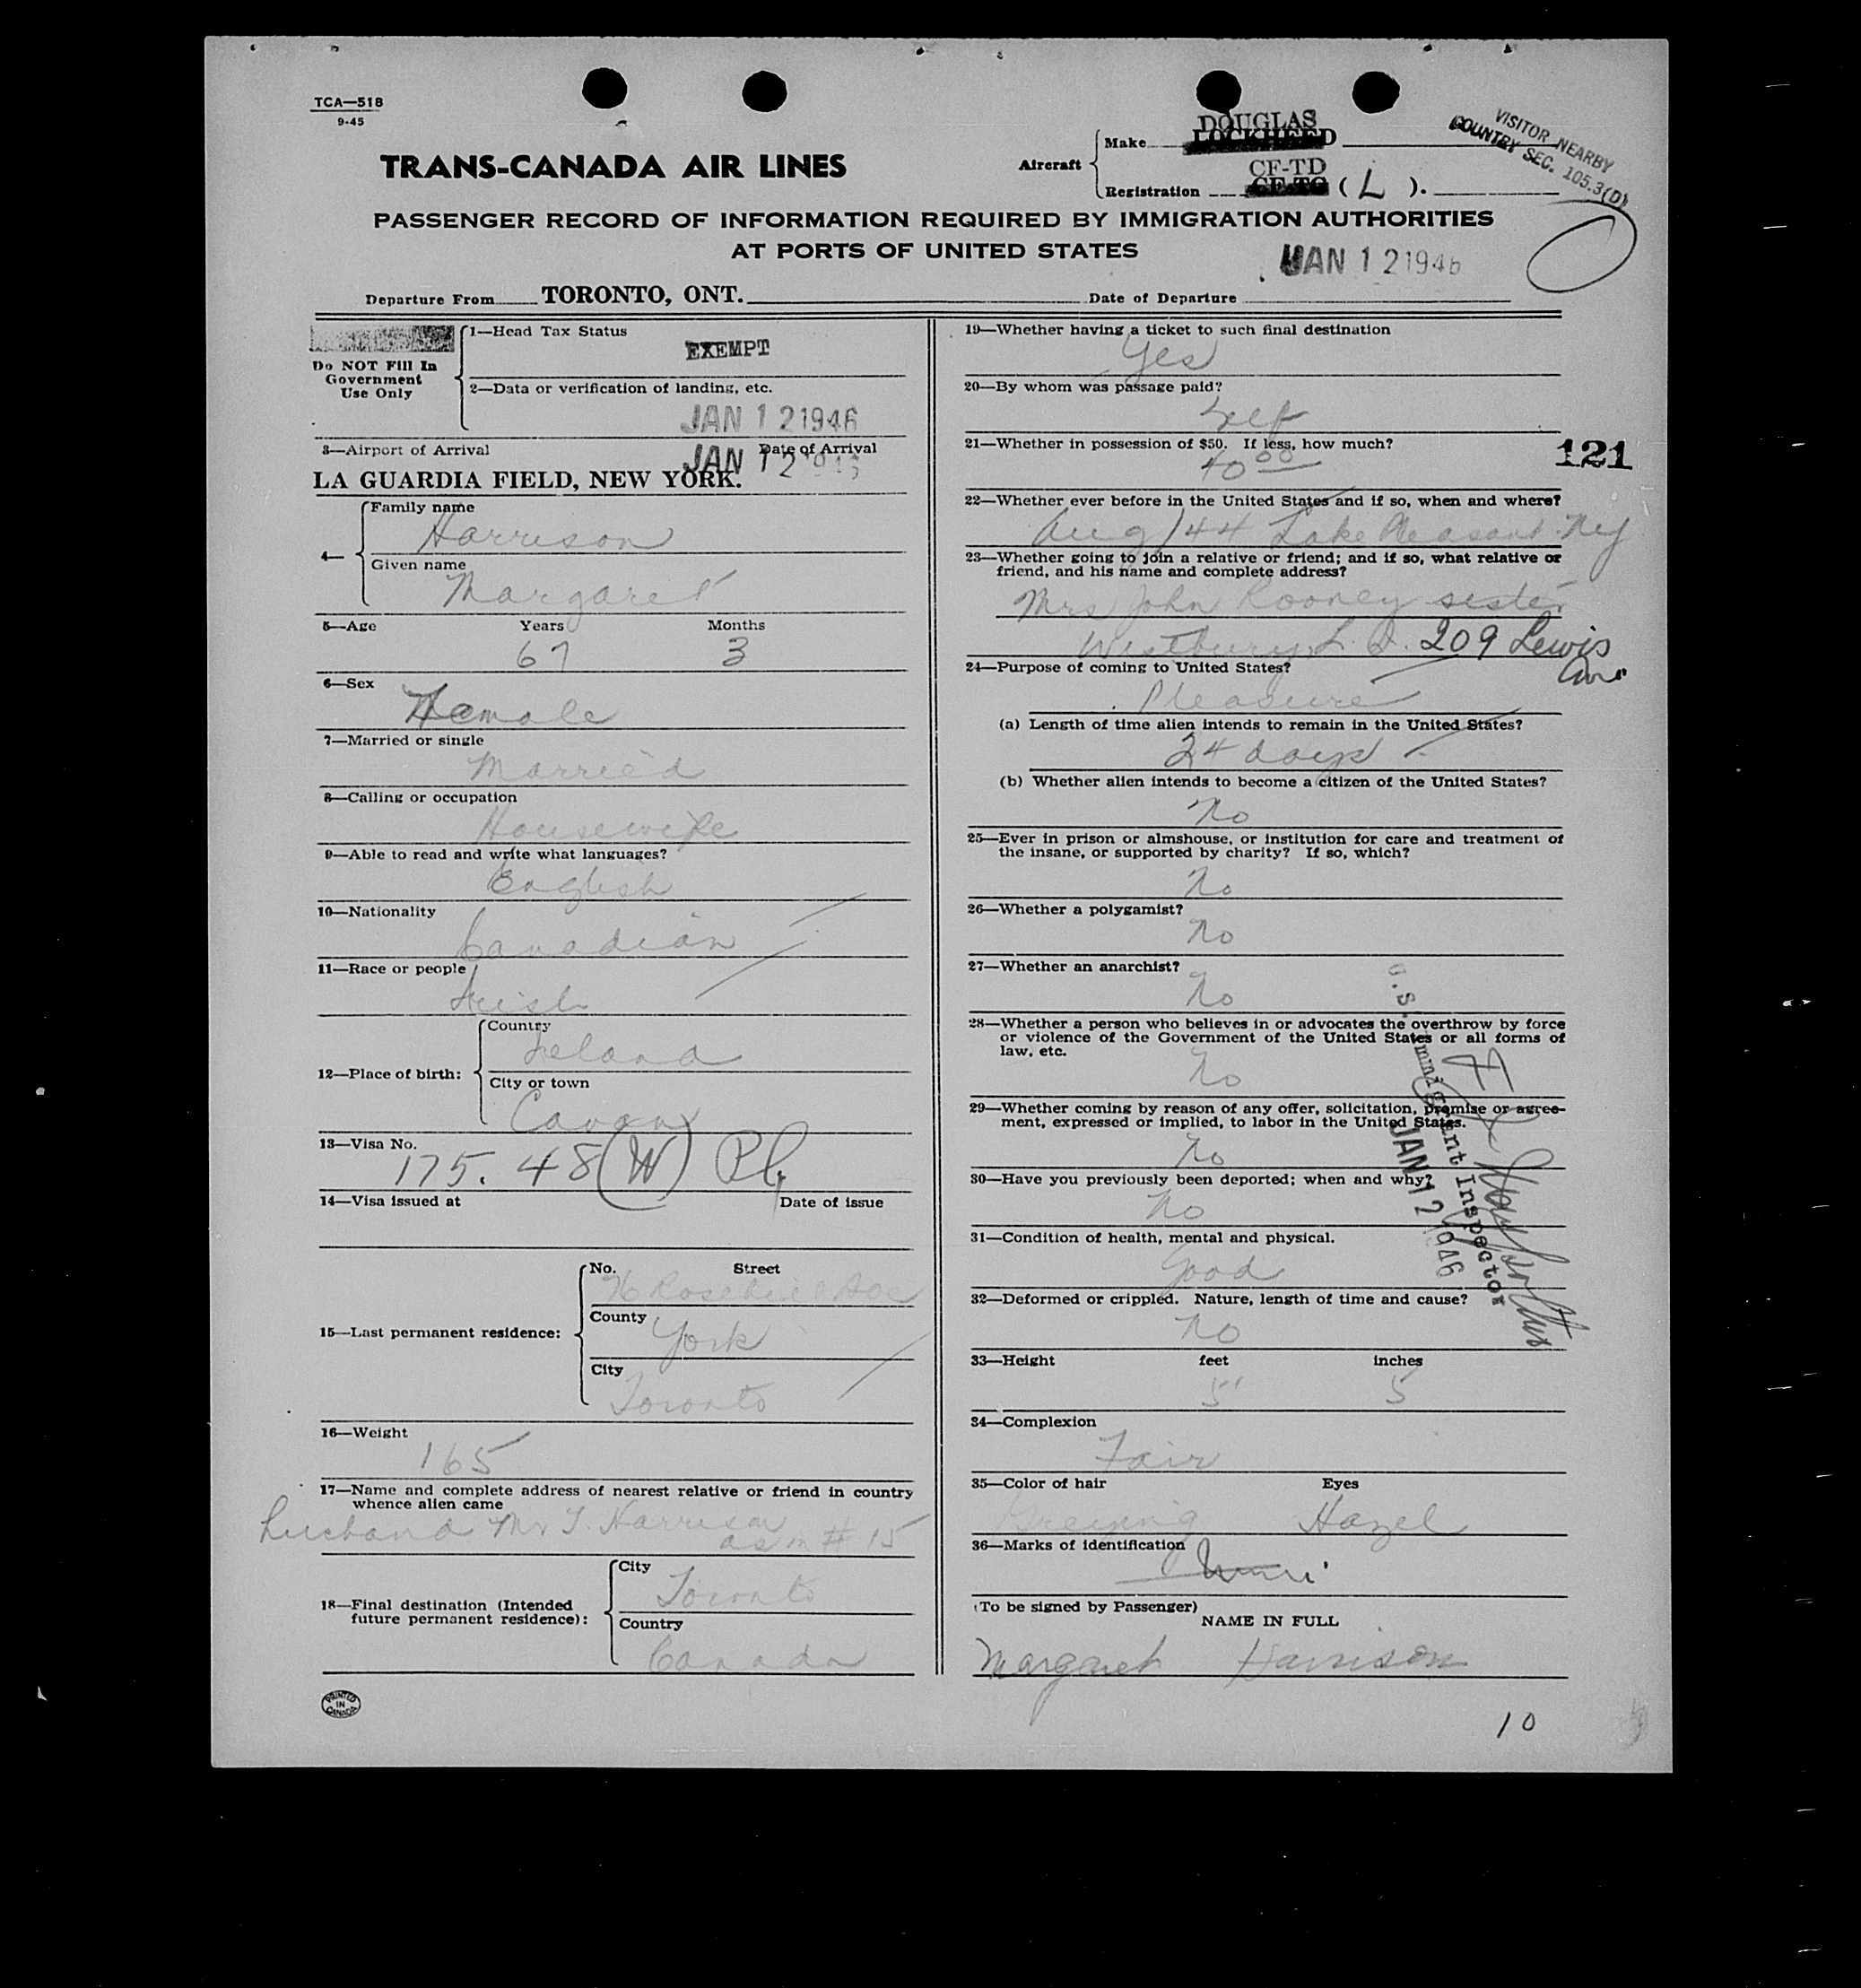 TCA—518
9-45
TRANS-CANADA AIR LINES
Aircraft
Make
DOUGLAS
LOCKHEED
Registration
CF-TD
CF-TC ( L ).
VISITOR NEARBY
COUNTRY SEC. 105.3(D)
PASSENGER RECORD OF INFORMATION REQUIRED BY IMMIGRATION AUTHORITIES
AT PORTS OF UNITED STATES
JAN 12 1946
Departure From TORONTO, ONT.
Date of Departure
Do NOT Fill In
Government
Use Only
1—Head Tax Status
EXEMPT
2—Data or verification of landing, etc.
JAN 12 1946
3—Airport of Arrival
Date of Arrival
JAN 12 1946
LA GUARDIA FIELD, NEW YORK.
4—
Family name
Harrison
Given name
Margaret
5—Age Years Months
67 3
6—Sex
Female
7—Married or single
Married
8—Calling or occupation
Housewife
9—Able to read and write what languages?
English
10—Nationality
Canadian
11—Race or people
Irish
12—Place of birth:
Country
Ireland
City or town
Cavan
13—Visa No.
175. 48 (W)
14—Visa issued at Date of issue
15—Last permanent residence:
No. Street
Rosehill Ave
County
York
City
Toronto
16—Weight
165
17—Name and complete address of nearest relative or friend in country
whence alien came
husband Mr T. Harrison
as in # 15
18—Final destination (Intended
future permanent residence):
City
Toronto
Country
Canada
PRINTED
IN
CANADA
19—Whether having a ticket to such final destination
Yes
20—By whom was passage paid?
Self
21—Whether in possession of $50. If less, how much?
40 00
121
22—Whether ever before in the United States and if so, when and where?
Aug/44 Lake Pleasant NY
23—Whether going to join a relative or friend; and if so, what relative or
friend, and his name and complete address?
Mrs John Rooney sister
Westbury L. I. 209 Lewis
Ave
24—Purpose of coming to United States?
Pleasure
(a) Length of time alien intends to remain in the United States?
24 days
(b) Whether alien intends to become a citizen of the United States?
No
25—Ever in prison or almshouse, or institution for care and treatment of
the insane, or supported by charity? If so, which?
No
26—Whether a polygamist?
No
27—Whether an anarchist?
No
28—Whether a person who believes in or advocates the overthrow by force
or violence of the Government of the United States or all forms of
law, etc.
No
29—Whether coming by reason of any offer, solicitation, promise or agree-
ment, expressed or implied, to labor in the United States.
No
30—Have you previously been deported; when and why?
No
31—Condition of health, mental and physical.
Good
32—Deformed or crippled. Nature, length of time and cause?
No
U.S. Immigrant Inspector
JAN 12 1946
33—Height feet inches
5 5
34—Complexion
Fair
35—Color of hair Eyes
Greying Hazel
36—Marks of identification
(To be signed by Passenger)
NAME IN FULL
Margaret Harrison
10